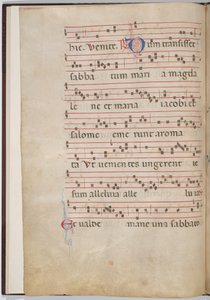 hic. Venite. R Dum transisset
sabba tum mari a magda
le ne et maria iacobi et
salome eme runt aroma
ta Vt venientes ungerent ie
sum alleluia alle lu
Et valde mane una sabbato